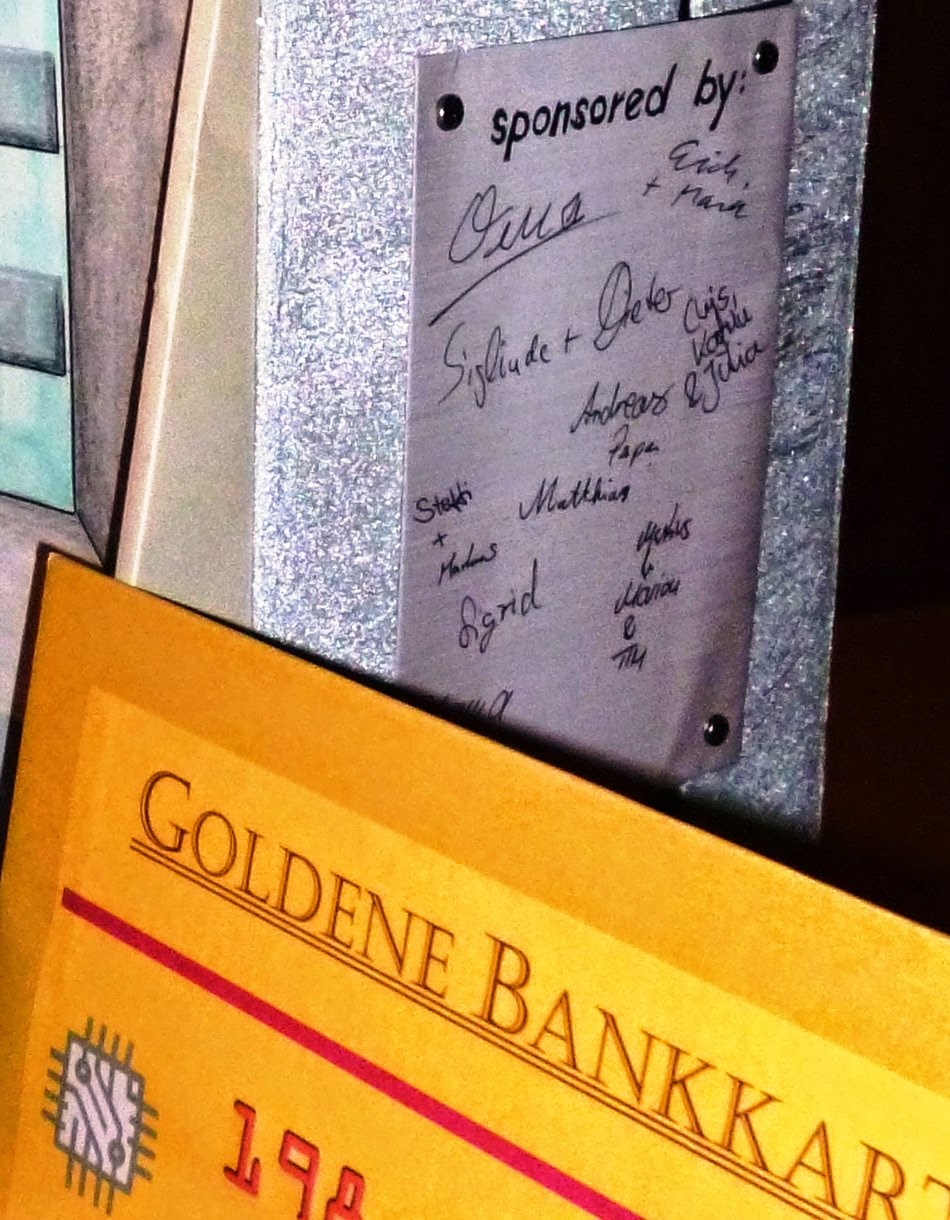 sponsored by:
Oma
+ Erich,
Maria
Siglinde + Dieter
&Julia
Andreas
Papa
Steffi
+
Markus
Matthias
Sigrid
Markus
&
Marion
&
Tim
GOLDENE BANKKART
198